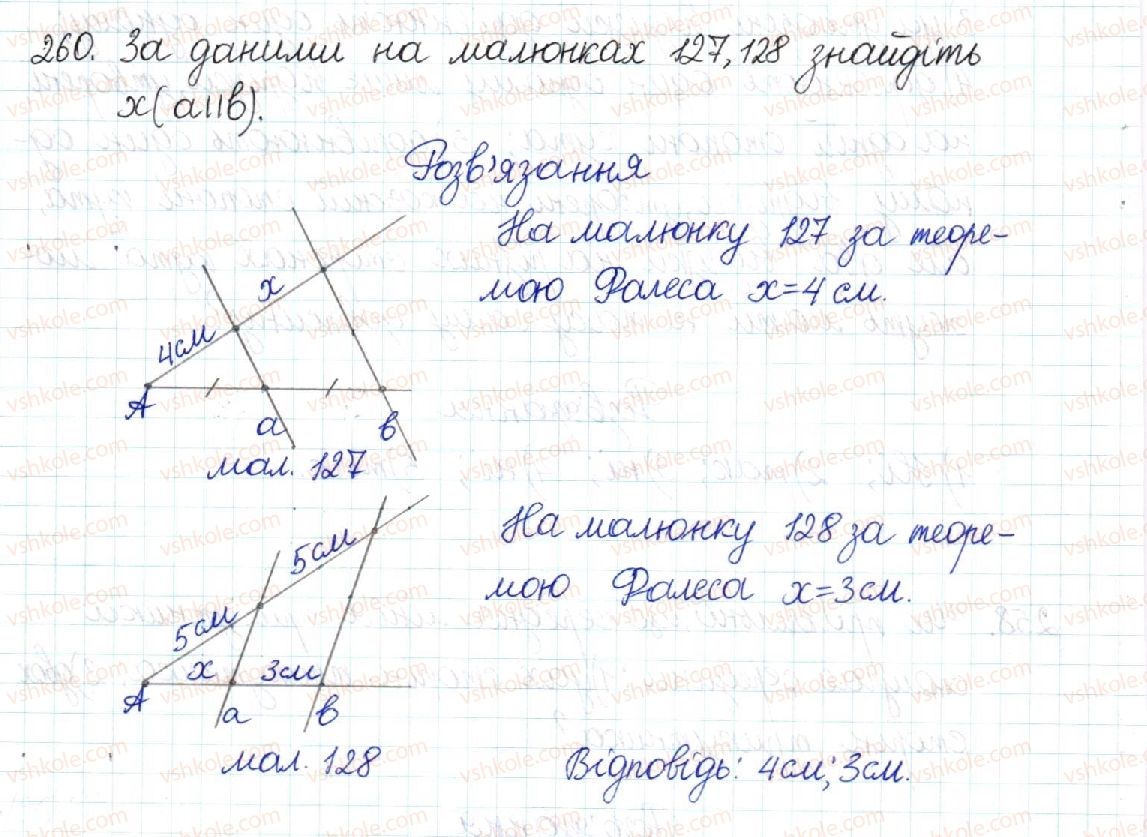 260. За даними на малюнках 127, 128 знайдіть
x(a||b).
Розв'язання
На малюнку 127 за теоре-
мою Фалеса x=4см.
x
4см
A
a
b
мал. 127
На малюнку 128 за теоре-
мою Фалеса x=3см.
5см
5см
x
3см
A
a
b
мал. 128
Відповідь: 4см; 3см.
vshkole.com